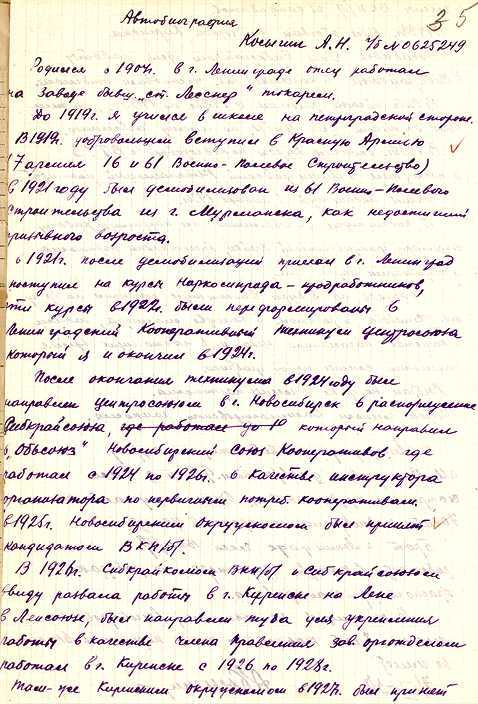 35
Автобиография
Косыгин А.Н. п/б № 0625249
Родился в 1904г. в г. Ленинграде отец работал
на заводе бывш. „ст. Лесснер" токарем.
До 1919г. я учился в школе на петроградской стороне.
В 1919г. добровольцем вступил в Красную Армию
(7 армия 16 и 61 Военно-Полевое Строительство)
в 1921 году был демобилизован из 61 Военно-Полевого
Строительства из г. Мурманска, как недостигший
призывного возраста.
в 1921г. после демобилизации приехал в г. Ленинград
поступил на курсы Наркомпрода - продработников,
эти курсы в 1922г. были переформированы в
Ленинградский Кооперативный техникум Центросоюза
который я и окончил в 1924г.
После окончания техникума в 1924 году был
направлен Центросоюзом в г. Новосибирск в распоряжение
Сибкрайсоюза, где работал до который направил
в „Обсоюз" Новосибирский Союз Кооперативов где
работал с 1924 по 1926г. в качестве инструктора
организатора по первичным потреб. кооперативам.
в 1925г. Новосибирским Окружкомом был принят
кандидатом ВКП/б/.
В 1926г. Сибкрайкомом ВКП/б/ и Сибкрайсоюзом
ввиду развала работы в г. Киренске на Лене
в Ленсоюзе, был направлен туда для укрепления
работы в качестве члена правления зав. орготделом
работал в г. Киренске с 1926 по 1928г.
Там-же Киренским окружкомом в 1927г. был принят